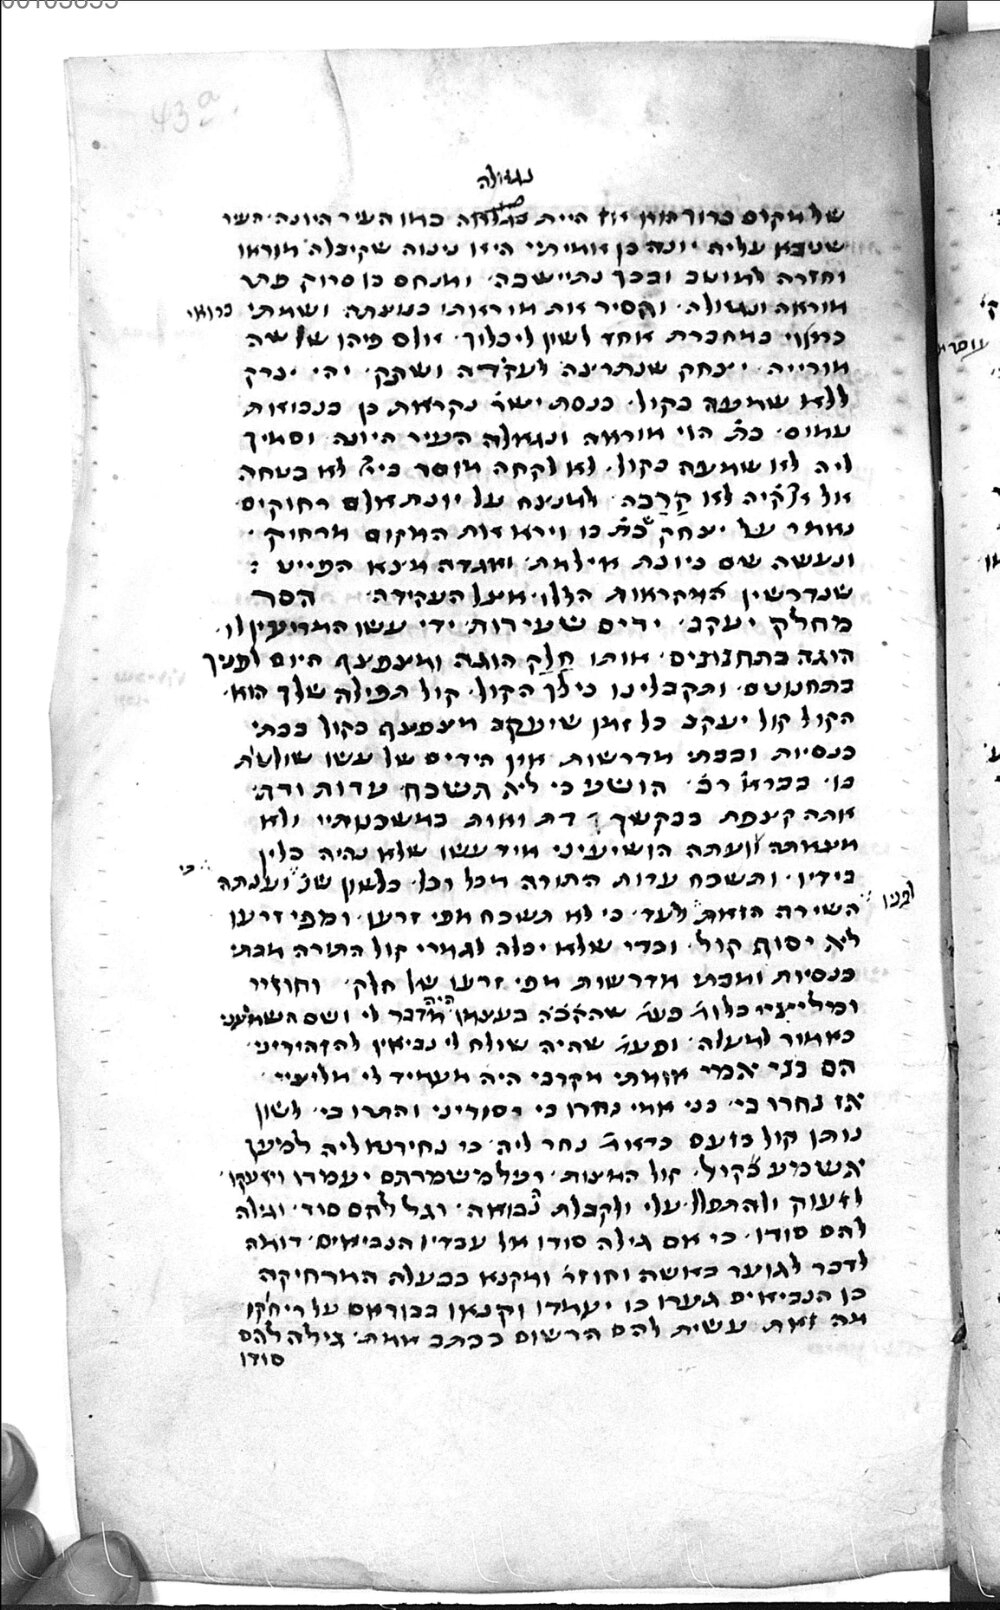 43a
נגאולה
של מקום ברוך הוא זו היית כמו העיר היונה העיר
שנבא עליה יונה בן אמיתי היא נינוה שקיבלה מוראו
וחזרה למוטב ובכך נתיישבה ומנחם בן סרוק פתר
מוראה ונגאולה והסיר את מוראתו בנוצתה ושמתי כרואי
במחברת אחד לשון ליכלוך אולם פיהו של שה
מורייה יצחק שנתרצה לעקדה ושתק יהי יצחק
ללא שמעה בקול כנסת ישר נקראת כן בנבואות
עמוס הוי מוראה ונגאלה העיר היונה וסמיך
ליה לא שמעה בקול לא לקחה מוסר ביי לא בטחה
אל אלהיה לא קרבה למנצח על יונת אלם רחוקים
נאמר על יצחק כת בו וירא את המקום מרחוק
ונעשה שם כיונת אילמת ואגדה מצא הפייט
שנדרשין המקראות הללו אצל העקידה הסר
מחלק יעקב ידים שעירות ידי עשו המרועין לו
הוגה בתחנונים אותו חלק הוגה ומצפצף היום לפניך
בתחנונים ותקבלינו כי לך הקול קול תפילה שלך הוא
הקול קול יעקב כל זמן שיעקב מצפצף בקול בבתי
כנסיות ובבתי מדרשות אין הידים של עשו שולטות
בו בברא רב הושע כי לא תשכח עדות ודת
אתה קינפת בבקשך דת ואות במשכנותיי ולא
מצאתה ועתה הושיעיני מיד עשו שלא נהיה כלין
בידיו ותשכח עדות התורה מכל וכל כלשון שנ וענתה כי
השירה הזאת לפניו לעד כי לא תשכח מפי זרעו ומפי זרעו
לא יסוף קול ובדי שלא יכלה לגמרי קול התורה מבתי
כנסיות ומבתי מדרשות מפי זרעו של חלק וחוזיי
ומליציי כלומ פעמ שהקבה בעצמו היה מדבר לי ושם השמעני
כאמור למעלה ופעמ שהיה שולח לי נביאין להזהירני
הם בני אמי אומתי מקרבי היה מעמיד לי מליציי
אז נחרו בי בני אמי נחרו בי יסורוני והתרו בי לשון
נותן קול בזעם כדאמ נחר ליה בי נחירנא ליה למען
אשמע בקול קול המצות ועל משמרתם יעמדו ויזעקו
לזעוק ולהתפלל עלי ולקבלת הנבואה וגל להם סוד וגילה
להם סודו כי אם גילה סודו אל עבדיו הנביאים דומה
לדבר לגוער באשה וחוזר ומקנא בבעלה המרחיקה
כן הנביאים גערו בו יעמדו וקנאו בבוראם על ריחוקו
מה זאת עשית להם הרשום בכתב אמת גילה להם
סודו